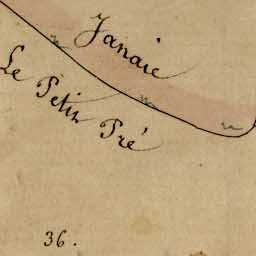 Janaie
Le Petit Pré
36.